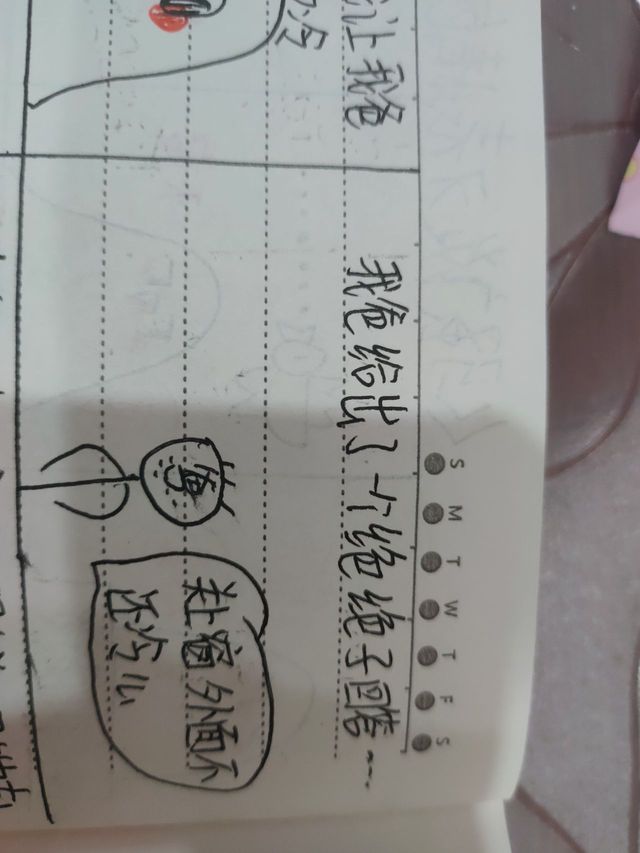 S M T W T F S
让我爸
冷
我爸给出了一个绝绝子回答…
爸
关上窗外面不
还冷